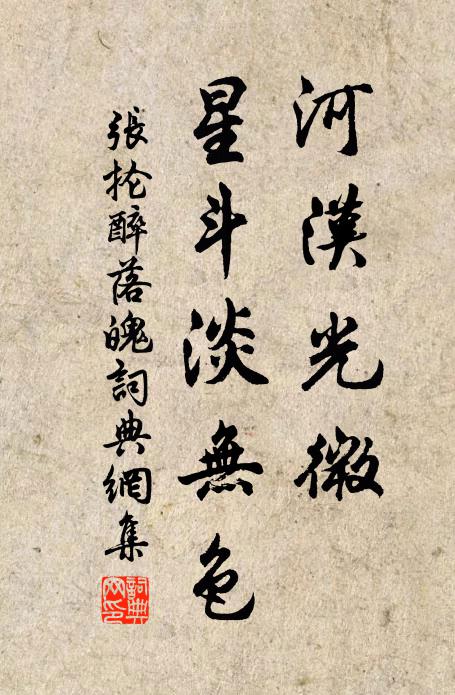 河漢光微
星斗淡無色
張掄醉落魄詞典網集
詞典
网印